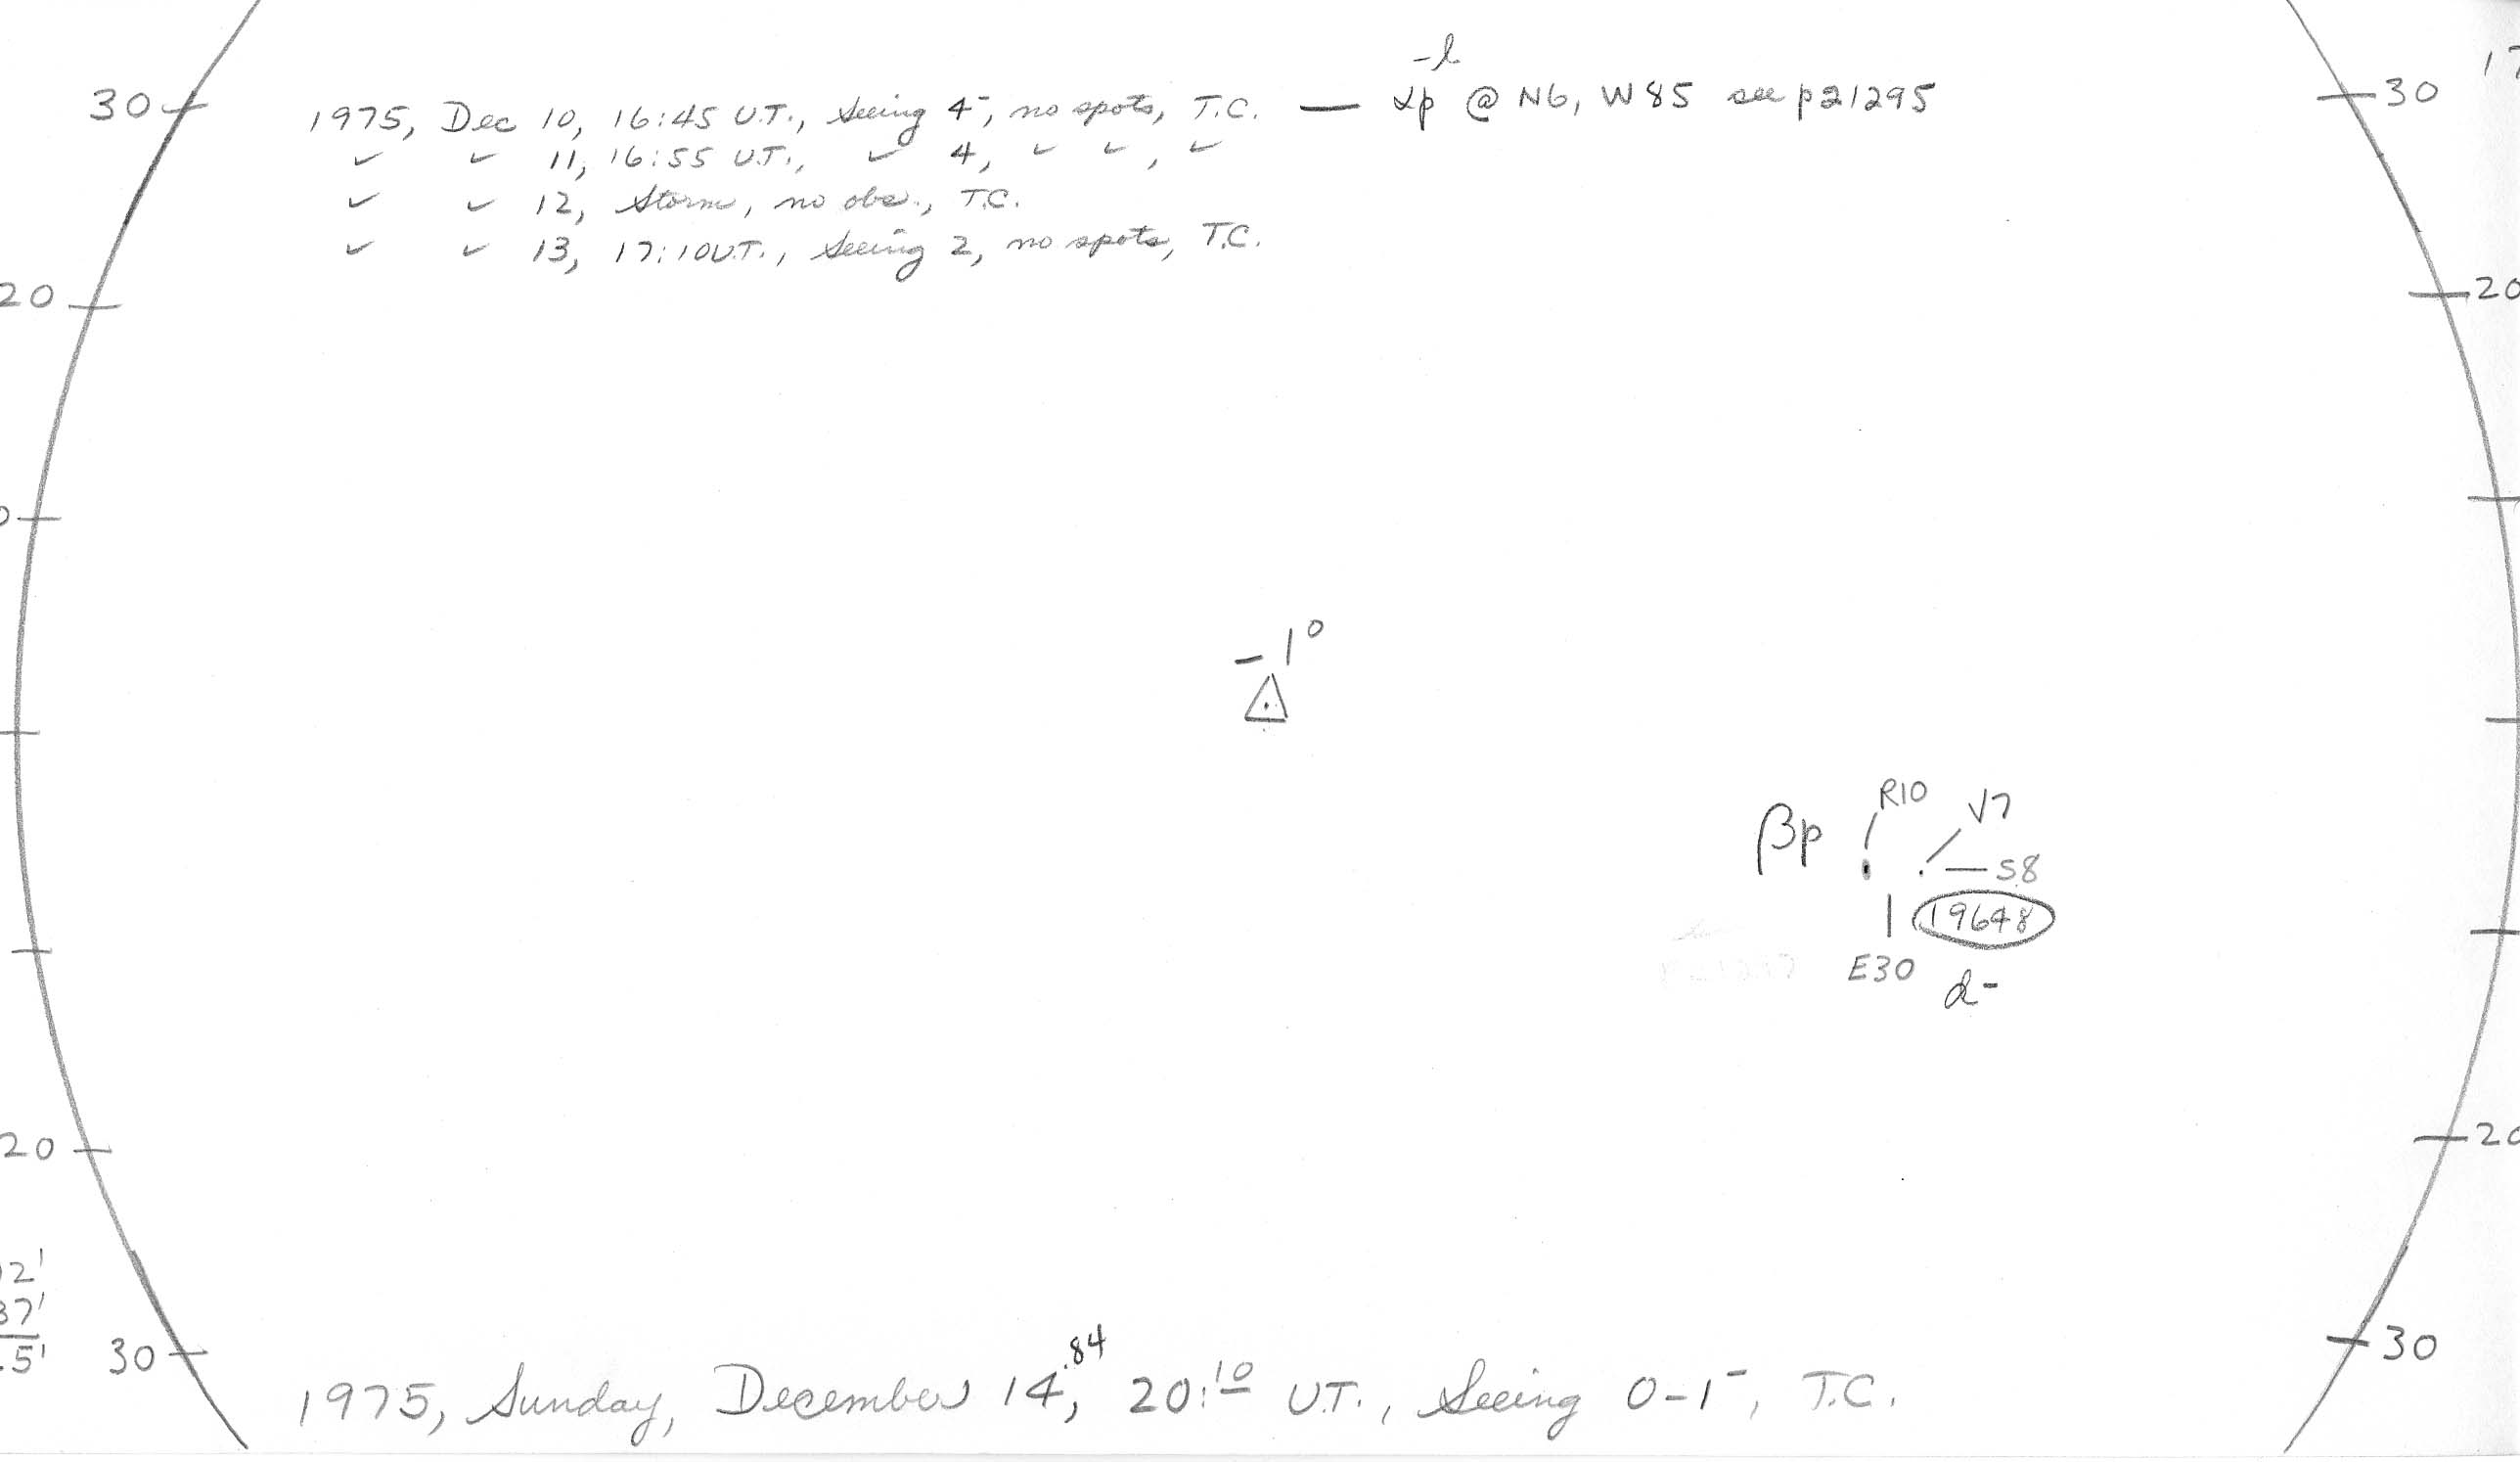 -l
30 1975, Dec 10, 16:45 U.T., Seeing 4-, no spots, T.C. — αp @ N6, W85 see p21295 30 17
✓ ✓ 11, 16:55 U.T., ✓ 4, ✓ ✓, ✓
✓ ✓ 12, Storm, no obs., T.C.
✓ ✓ 13, 17:10 U.T., Seeing 2, no spots, T.C.
20 20
0
-1°
R10 V7
βp
S8
19648
E30
d-
20 20
12'
37'
.5' 30 30
1975, Sunday, December 14.84, 20:10 U.T., Seeing 0-1-, T.C.